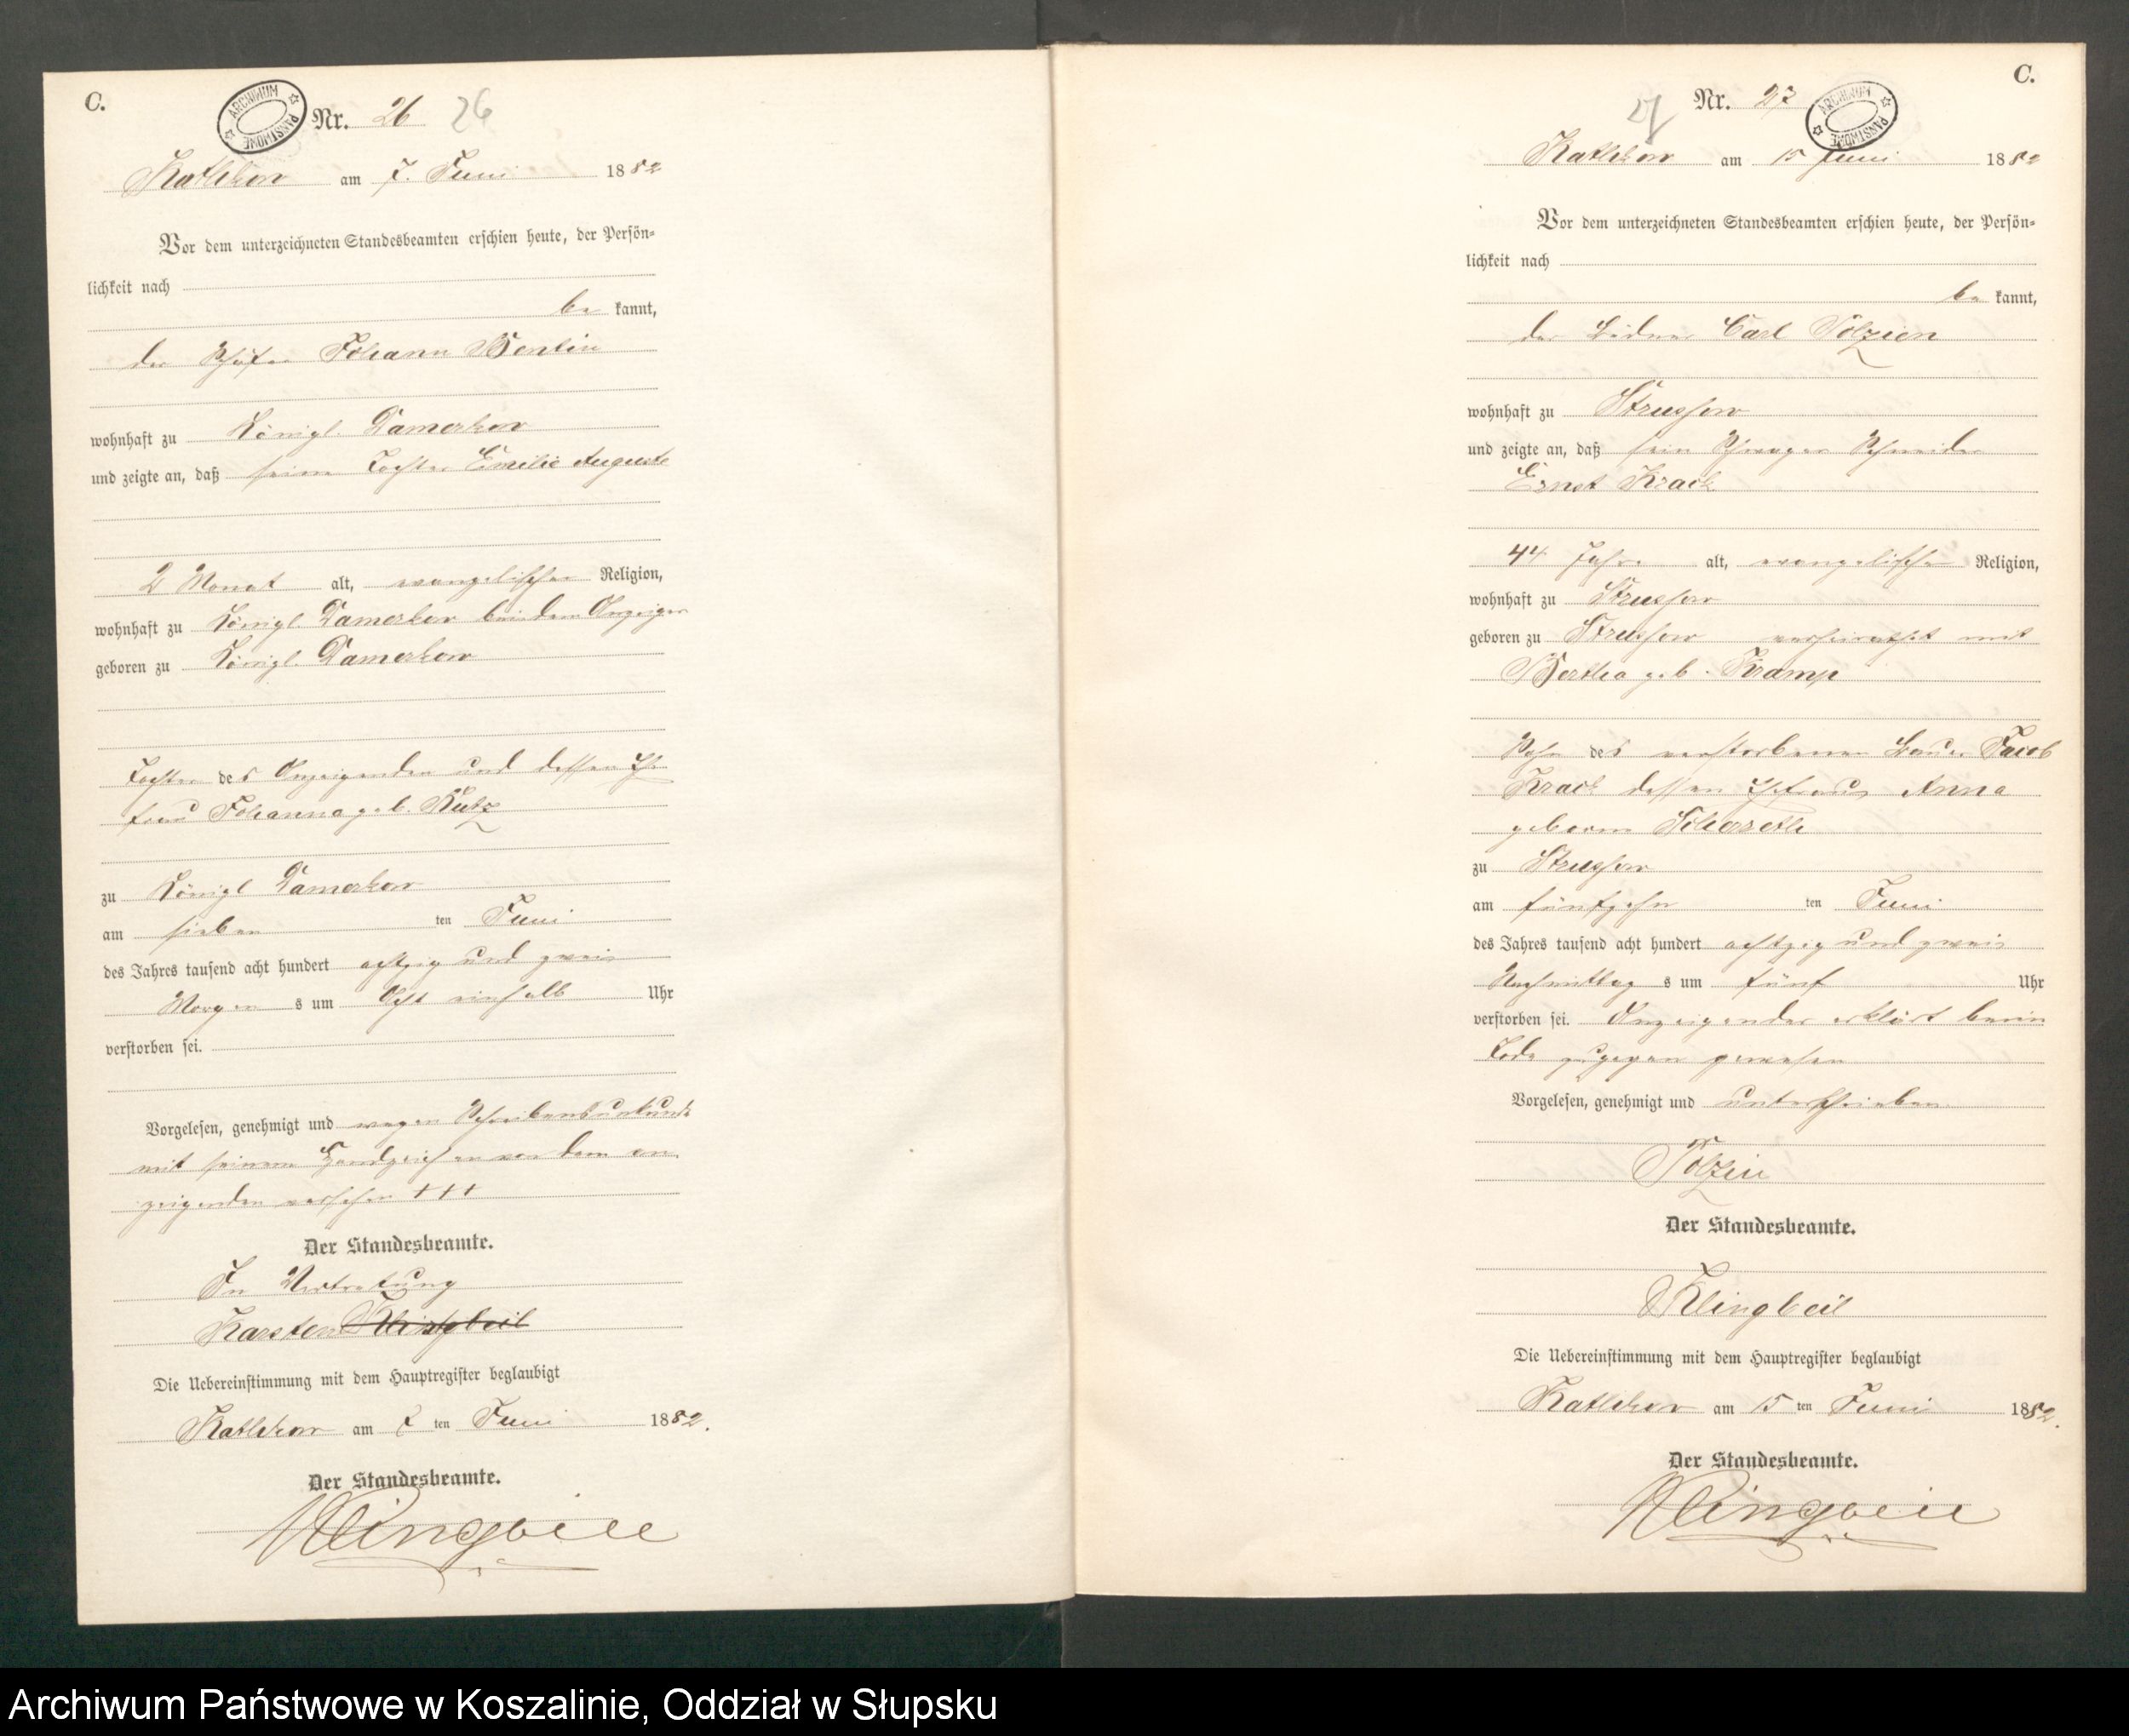 C.
ARCHIWUM PAŃSTWOWE
Nr. 26 26
Kathkow am 7. Juni 1882
Vor dem unterzeichneten Standesbeamten erschien heute, der Persön-
lichkeit nach
be kannt,
der Schäfer Johann Bentin
wohnhaft zu Königl. Damerkow
und zeigte an, daß seine Tochter Emilie Auguste
2 Monat alt, evangelischer Religion,
wohnhaft zu Königl. Damerkow bei dem Anzeiger
geboren zu Königl. Damerkow
Tochter des Anzeigenden und dessen Ehe
frau Johanna geb. Kutz
zu Königl Damerkow
am sieben ten Juni
des Jahres tausend acht hundert achtzig und zwei
Morgen s um Acht einhalb Uhr
verstorben sei.
Vorgelesen, genehmigt und wegen Schreibensunkunde
mit seinem Handzeichen von dem an
zeigenden versehen +++
Der Standesbeamte.
In Vertretung
Karsten Klingbeil
Die Uebereinstimmung mit dem Hauptregister beglaubigt
Kathkow am 7 ten Juni 1882.
Der Standesbeamte.
Klingbeil
C.
27 Nr. 27
ARCHIWUM PAŃSTWOWE
Kathkow am 15 Juni 1882
Vor dem unterzeichneten Standesbeamten erschien heute, der Persön-
lichkeit nach
be kannt,
der Büdner Carl Tolzien
wohnhaft zu Strussow
und zeigte an, daß sein Schwager Schneider
Ernst Krack
44 Jahre alt, evangelischer Religion,
wohnhaft zu Strussow
geboren zu Strussow verheirathet mit
Bertha geb. Kramp
Sohn des verstorbenen Bauer Jacob
Krack dessen Ehefrau Anna
geborne
zu Strussow
am fünfzehn ten Juni
des Jahres tausend acht hundert achtzig und zwei
Nachmittag s um fünf Uhr
verstorben sei. Anzeigender erklärt beim
Tode zugegen gewesen
Vorgelesen, genehmigt und unterschrieben
Tolzin
Der Standesbeamte.
Klingbeil
Die Uebereinstimmung mit dem Hauptregister beglaubigt
Kathkow am 15 ten Juni 1882.
Der Standesbeamte.
Klingbeil
Archiwum Państwowe w Koszalinie, Oddział w Słupsku